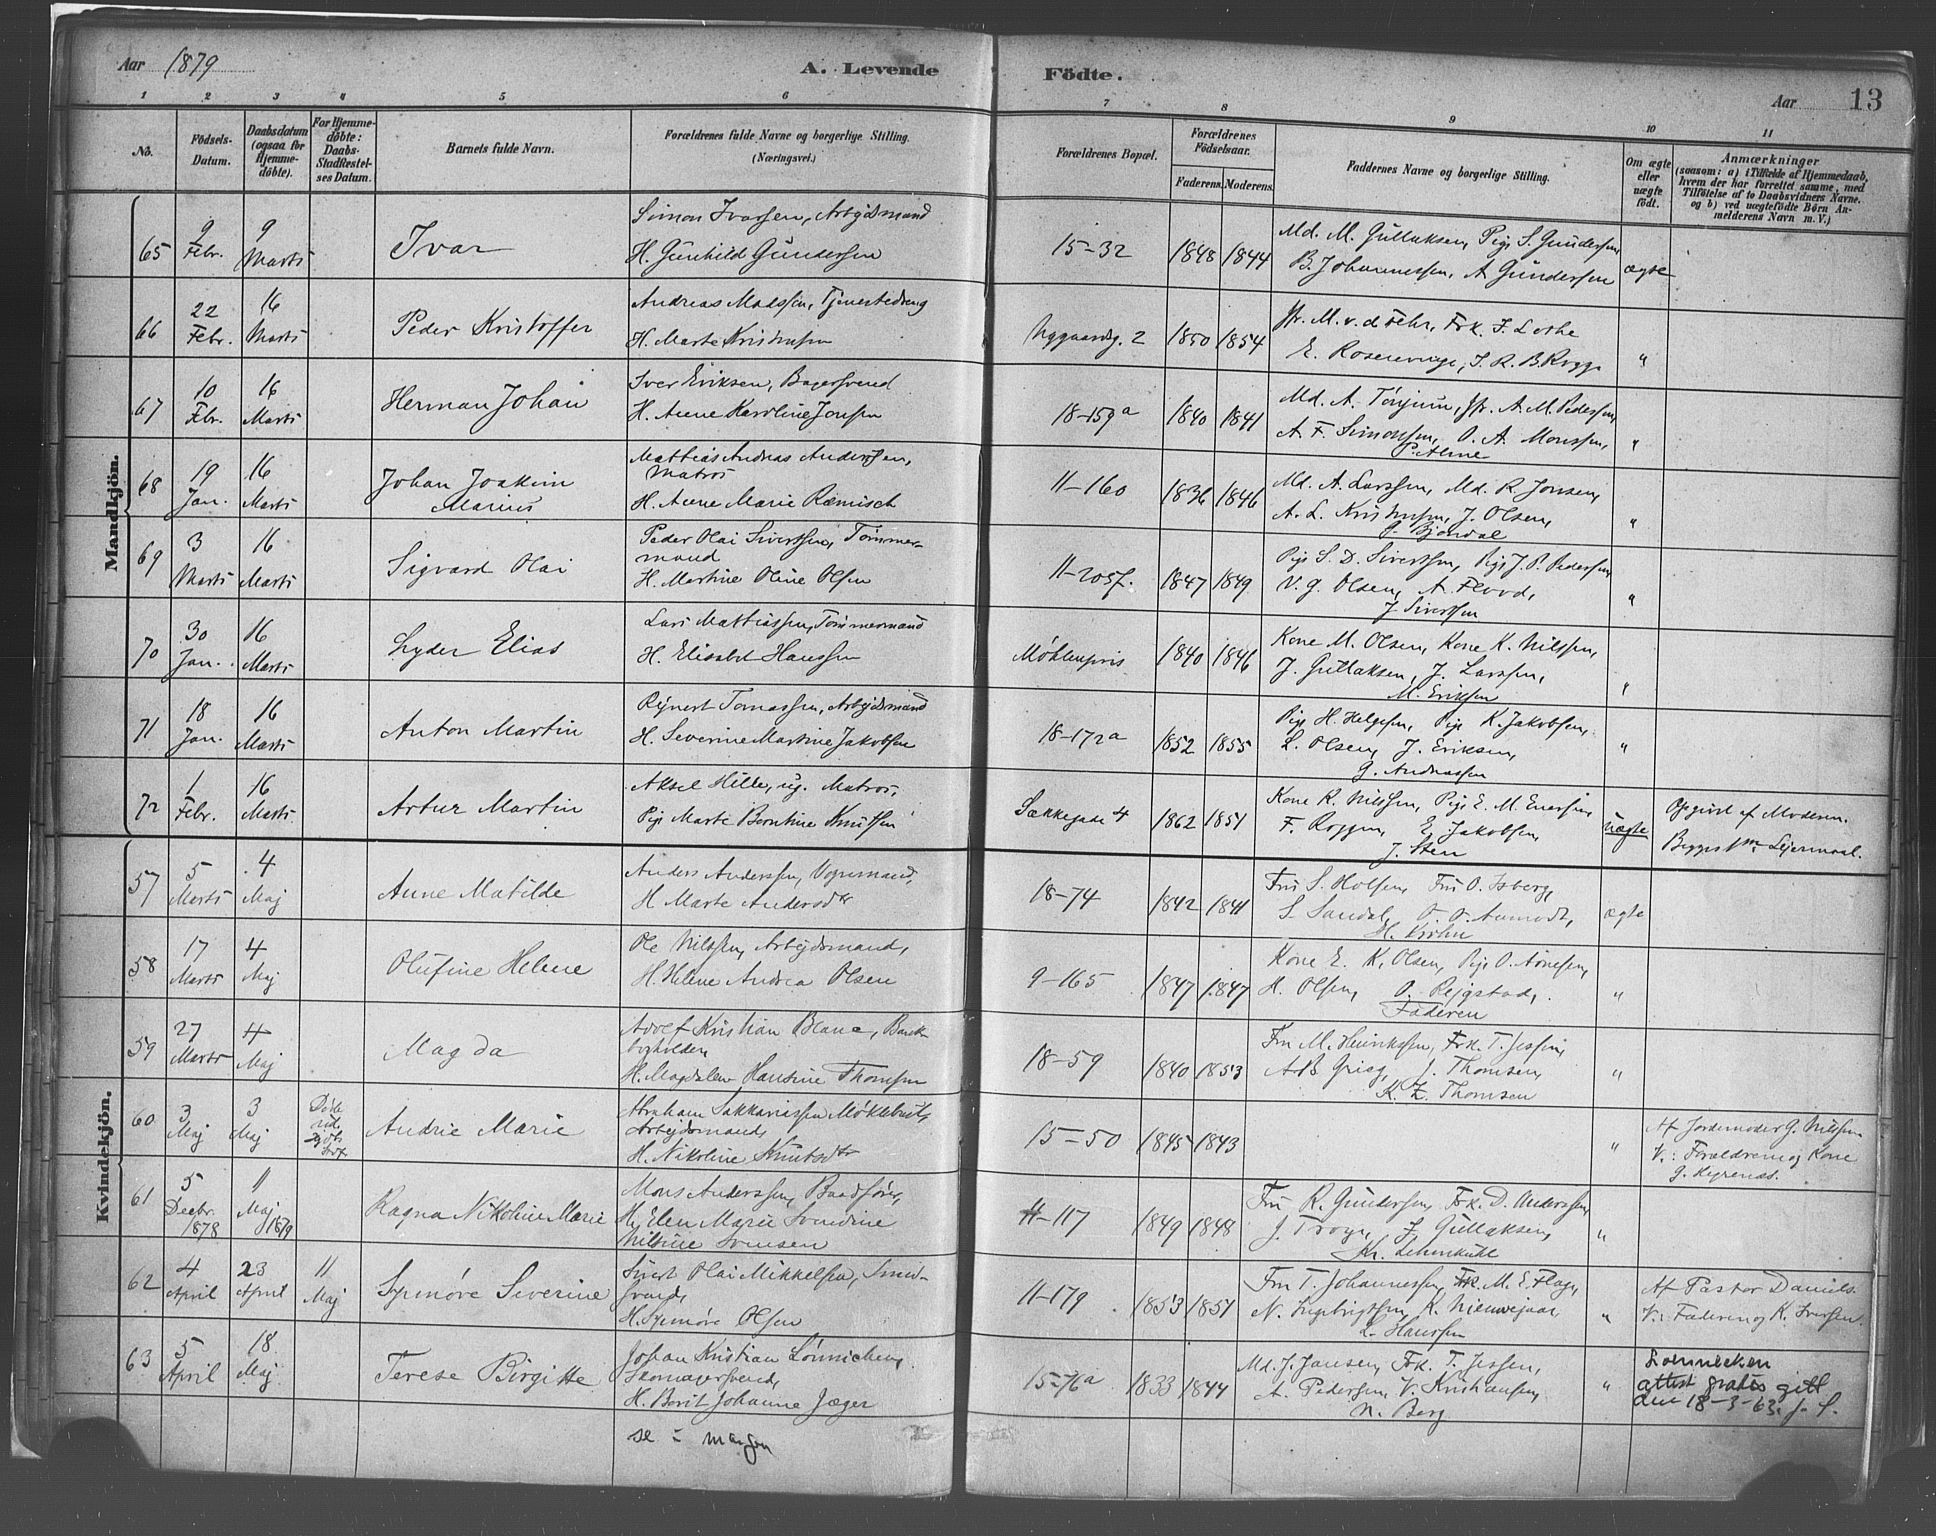 Aar 1879 A. Levende Fødte. Aar 13
1 2 3 4 5 6 7 8 9 10 11
No.
Fødsels-Datum.
Daabsdatum (ogsaa for Hjemmedøbte).
For Hjemmedøbte: Daabs-Stadfæstelses Datum.
Barnets fulde Navn.
Forældrenes fulde Navne og borgerlige Stilling.
(Næringsvei.)
Forældrenes Bopæl.
Forældrenes Fødselsaar.
Faderens. Moderens.
Faddernes Navne og borgerlige Stilling.
Om ægte eller uægte født.
Anmærkninger
(saasom: a) i Tilfælde af Hjemmedaab,
hvem der har forrettet samme, med
Tilføielse af to Daabsvidners Navne.
og b) ved uægtefødte Børn An-
melderens Navn m. V.)
Mandkjön.
65 9 Febr. 9 Marts Ivar
Simon Ivarsen, Arbejdsmand
H. Gunhild Gundersen
15-32 1848 1844
Md. M. Gullaksen, Pige S. Gundersen,
B. Johannessen, A Gundersen
ægte
66 22 Febr. 16 Marts Peder Kristoffer
Andreas Madssen, Tjenestedreng
H. Marte Kristensen
Nygaardsg. 2 1850 1854
Jfr. M. v. d Fehr, Frk. J. Lothe
E. Rosenvinge, J. R. B. Rogge
"
67 10 Febr. 16 Marts Herman Johan
Iver Eriksen, Bagersvend
H. Anne Karoline Jonsen
18-159a 1840 1841
Md. A. Tønjum, Jfr. A. M. Pedersen,
A. F. Simonsen, O. A. Monssen,
"
68 19 Jan. 16 Marts Johan Joakim
Marius
Mattias Andreas Anderssen,
Matros
H. Anne Marie Ræmisch
11-160 1836 1846
Md. A. Larssen, Md. R. Jonsen,
A. L. Kristensen, J. Olsen,
Bjørndal
"
69 3 Marts 16 Marts Sigvard Olai
Peder Olai Sivertsen, Tømmer-
mand
H. Martine Oline Olsen
11-205f. 1847 1849
Pige S. D. Sivertsen, Pige J. P. Pedersen,
V. G. Olsen, A. Flood,
J. Sivertsen
"
70 30 Jan. 16 Marts Lyder Elias
Lars Mattiassen, Tømmermand
H. Elisabet Hanssen
Møhlenpris 1840 1846
Kone M. Olsen, Kone K. Nilssen,
J. Gullaksen, J. Larssen,
M. Eriksen
"
71 18 Jan. 16 Marts Anton Martin
Rejnert Tomassen, Arbejdsmand
H. Severine Martine Jakobsen
18-172a 1852 1855
Pige H. Helgesen, Pige K. Jakobsen,
L. Olsen, J. Eriksen,
G. Andreassen
"
72 1 Febr. 16 Marts Artur Martin
Aksel Hille, ug. Matros,
Pige Marte Berntine Knutsen
Sækkegade 4 1862 1851
Kone K. Nilssen, Pige E. M. Enersen,
F. Roggen, E. Jakobsen,
J. Sten
uægte
Opgivet af Moderen.
Begges 1ste Lejermaal.
Kvindekjön.
57 5 Marts 4 Maj Anne Matilde
Anders Anderssen, Vognmand,
H Marte Andersdtr
18-74 1842 1841
Fru S. Holsen, Fru O. Isberg,
S. Sandal, O. O. Aamodt,
H. Krohn
ægte
58 17 Marts 4 Maj Olufine Helene
Ole Nilssen, Arbejdsmand,
H. Helene Andrea Olsen
9-165 1847 1847
Kone E. K. Olsen, Pige O. Arnesen,
H. Olsen, O. Rejgstad,
Faderen
"
59 27 Marts 4 Maj Magda
Adolf Kristian Blanc, Bank-
bogholder,
H. Magdalene Hansine Thomsen
18-59 1840 1853
Fru M. Henrikssen, Frk. T. Jessen,
A B Grieg, J. Thomsen,
K. Z. Thomsen
"
60 3 Maj 3 Maj
Andrie Marie
Abraham Sakkariassen Møklebust,
Arbejdsmand,
H. Nikoline Knutsdtr
15-50 1845 1843
"
Af Jordemoder G. Nilssen
V.: Forældrene og Kone
G. Myrenæs.
61 5 Decbr. 1878 11 Maj 1879 Ragna Nikoline Marie
Mons Anderssen, Baadfører,
H. Elen Marie Svendrine
Nilsine Svensen
4-117 1849 1848
Fru R. Gundersen, Frk. D. Anderssen,
J. Troye, J. Gullaksen,
Kr. Lehmkuhl
"
62 4 April 23 April 11 Maj Synnøve Severine
Sivert Olai Mikkelsen, Smed-
svend,
H. Synnøve Olsen
11-179 1853 1851
Fru T. Johannessen, Frk. M. E. Flage,
N. Ingebrigtsen, K. Nieuwejaar,
L. Hanssen
"
Af Pastor Daniels.
V.: Faderen og K. Iversen.
63 5 April 18 Maj Terese Birgitte
Johan Kristian Lønnichen,
Skomagersvend,
H. Berit Johanne Jæger
15-76a 1833 1844
Md. J. Jansen, Frk. T. Jessen,
A. Pedersen, V. Kristiansen,
N. Berg
"
Lonnecken
attest gratis gitt
den 18-3-63. J. S.
se i margen